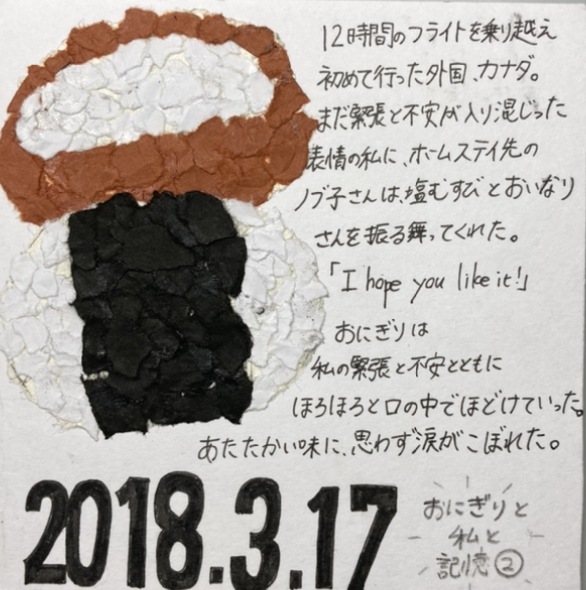 12時間のフライトを乗り越え
初めて行った外国、カナダ。
まだ緊張と不安が入り混じった
表情の私に、ホームステイ先の
ノブ子さんは、塩むすびとおいなり
さんを振る舞ってくれた。
「I hope you like it!」
おにぎりは
私の緊張と不安とともに
ほろほろと口の中でほどけていった。
あたたかい味に、思わず涙がこぼれた。
2018.3.17
おにぎりと
私と
記憶②